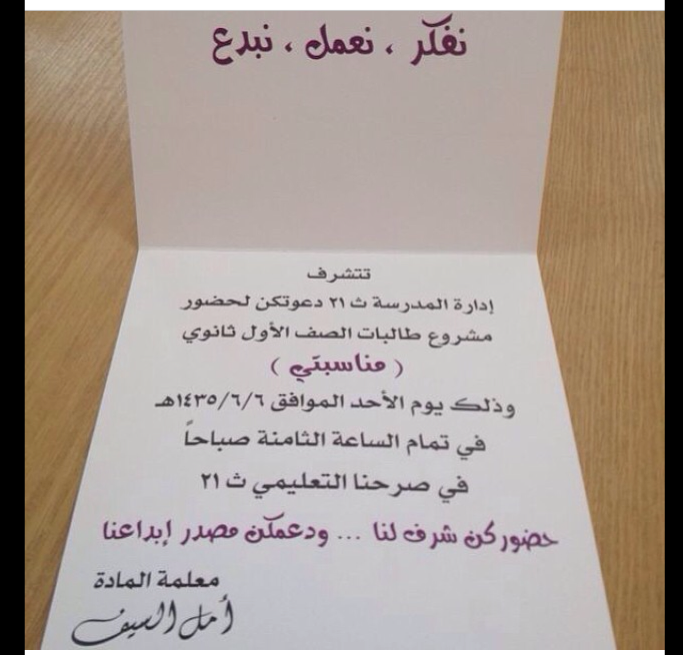 نفكر ، نعمل ، نبدع
تتشرف
إدارة المدرسة ث ٢١ دعوتكن لحضور
مشروع طالبات الصف الأول ثانوي
( مناسبتي )
وذلك يوم الأحد الموافق ١٤٣٥/٦/٦هـ
في تمام الساعة الثامنة صباحاً
في صرحنا التعليمي ث ٢١
حضوركن شرف لنا ... ودعمكن مصدر إبداعنا
معلمة المادة
أمل السيف